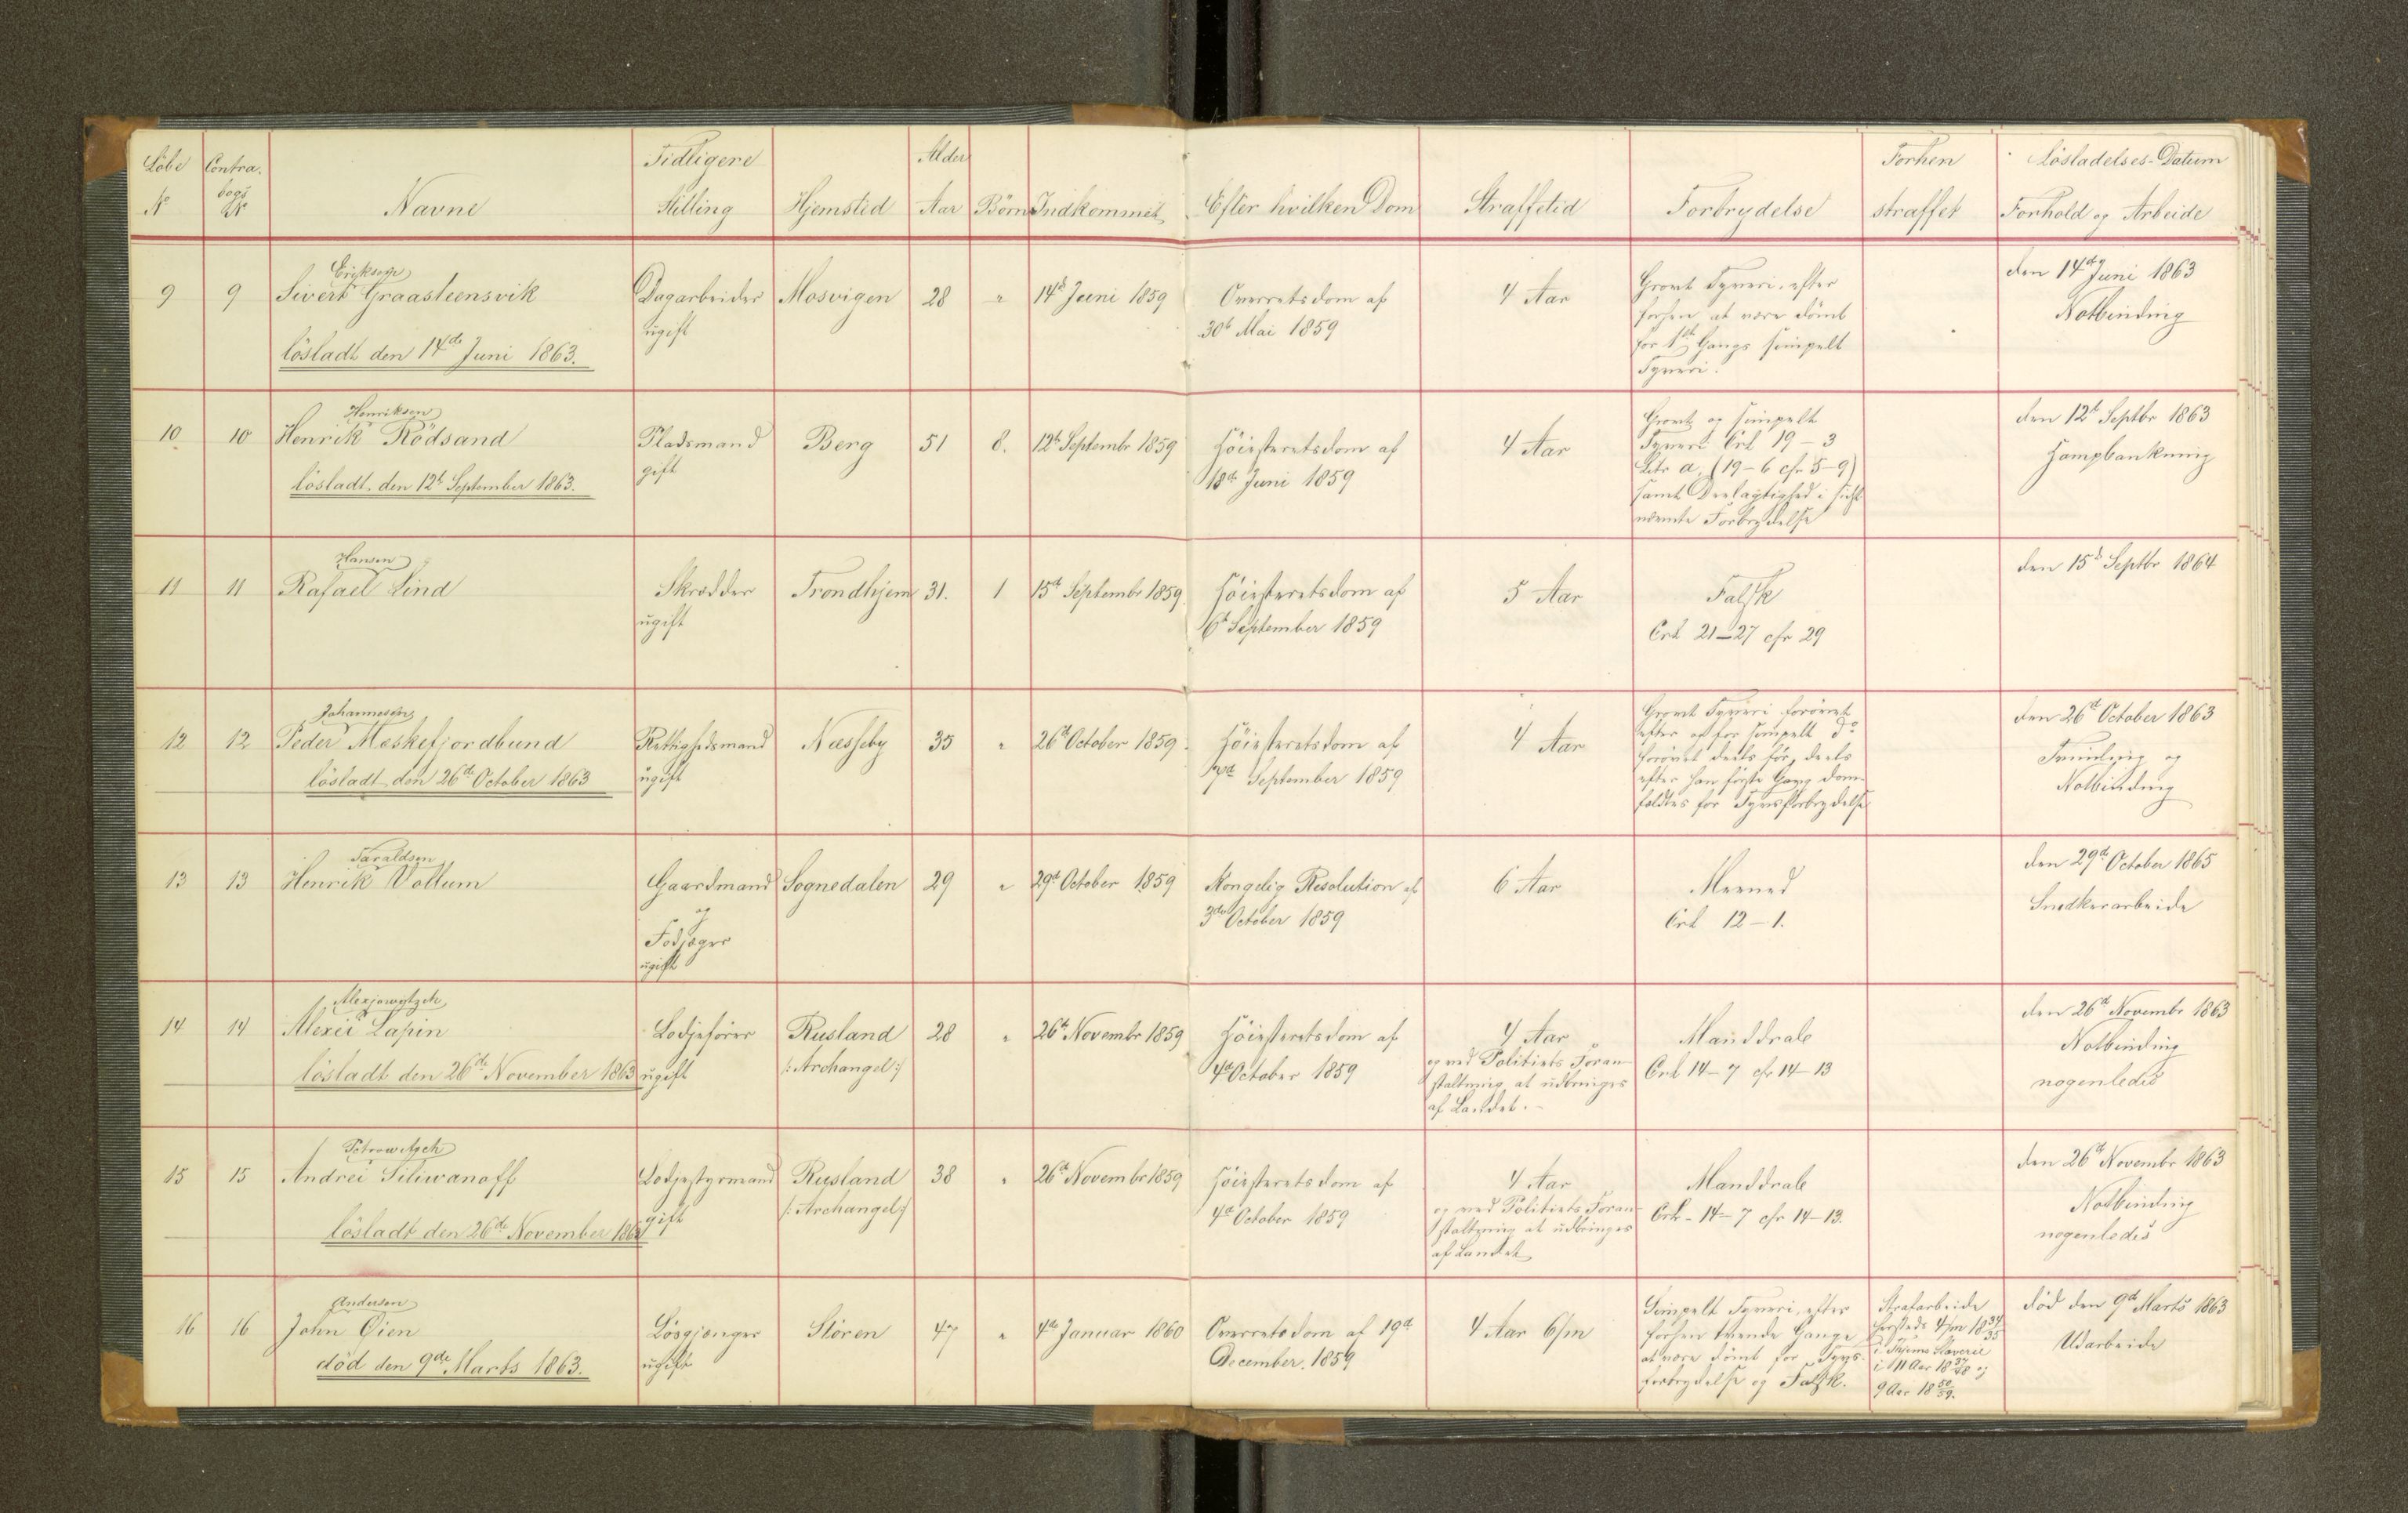 Løbe No
Contra. bogs No
Navne
Tidligere Stilling
Hjemsted
Alder Aar
Börn
Indkommet
Efter hvilken Dom
Straffetid
Forbrydelse
Forhen straffet
Lösladelses-Datum
Forhold og Arbeide
9
9
Eriksen
Sivert Graasteensvik
lösladt den 14de Juni 1863.
Dagarbeider
ugift
Mosvigen
28
"
14d Juni 1859
Overretsdom af
30t Mai 1859
4 Aar
Grovt Tyveri, efter
forhen at være dömt
for 1ste Gangs simpelt
Tyveri.
den 14de Juni 1863
Notbinding
10
10
Henriksen
Henrik Rödsand
lösladt den 12t September 1863.
Pladsmand
gift
Berg
51
8.
12t Septembr 1859
Höiesteretsdom af
18de Juni 1859
4 Aar
Grovt og simpelt
Tyveri Crl 19-3
Litr a, (19-6 cfr 5-9)
samt Deelagtighed i sidst
nævnte Forbrydelse
den 12t Septbr 1863
Hampbankning
11
11
Hansen
Rafael Lind
Skrædder
ugift
Trondhjem
31.
1
15d Septembr 1859
Höiesteretsdom af
6t September 1859
5 Aar
Falsk
Crl 21-27 cfr 29
den 15d Septbr 1864
12
12
Johannesen
Peder Mæskefjordbund
lösladt den 26de October 1863
Rettighedsmand
ugift
Næsseby
35
"
26d October 1859.
Höiesteretsdom af
7de September 1859
4 Aar
Grovt Tyveri forövet
efter og for simpelt do
forövet deels för, deels
efter han förste Gang dom-
fældtes for Tyvsforbrydelse
den 26d October 1863
Tvinding og
Notbinding
13
13
Taraldsen
Henrik Vollum
Gaardmand
og
Fodjæger
ugift
Sognedalen
29
"
29d October 1859
Kongelig Resolution af
3de October 1859
6 Aar
Meened
Crl 12-1.
den 29d October 1865
Snedkerarbeide
14
14
Alexjewytzch
Alexei Lapin
lösladt den 26de November 1863
Lodjefører
ugift
Rusland
/:Archangel:/
28
"
26d Novembr 1859
Höiesteretsdom af
4de October 1859
4 Aar
og ved Politiets Foran-
staltning at udbringes
af Landet.-
Manddrab
Crl 14-7 cfr 14-13
den 26d Novembr 1863
Notbinding
nogenledes
15
15
Petrowitzch
Andrei Siliwanoff
lösladt den 26de November 1863
Lodjestyrmand
gift
Rusland
/:Archangel:/
38
"
26d Novembr 1859
Höiesteretsdom af
4de October 1859
4 Aar
og ved Politiets Foran-
staltning at udbringes
af Landet
Manddrab
Crl-14-7 cfr 14-13.
den 26d Novembr 1863
Notbinding
nogenledes
16
16
Andersen
John Øien
död den 9de Marts 1863.
Lösgjænger
ugift
Stören
47
"
4de Januar 1860
Overretsdom af 19d
December. 1859
4 Aar 6/m
Simpelt Tyveri, efter
forhen trende Gange
at være dömt for Tyvs-
forbrydelse og Falsk.
Strafarbeide
hersteds 4/m 1834/35
i Thjems Slaverie
i 11 Aar 1837/48 og
9 Aar 1850/59.
död den 9d Marts 1863
Udarbeide